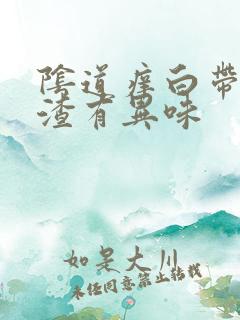 陰道痒白帶
渣有異味
如是大川
未经同意禁止转载